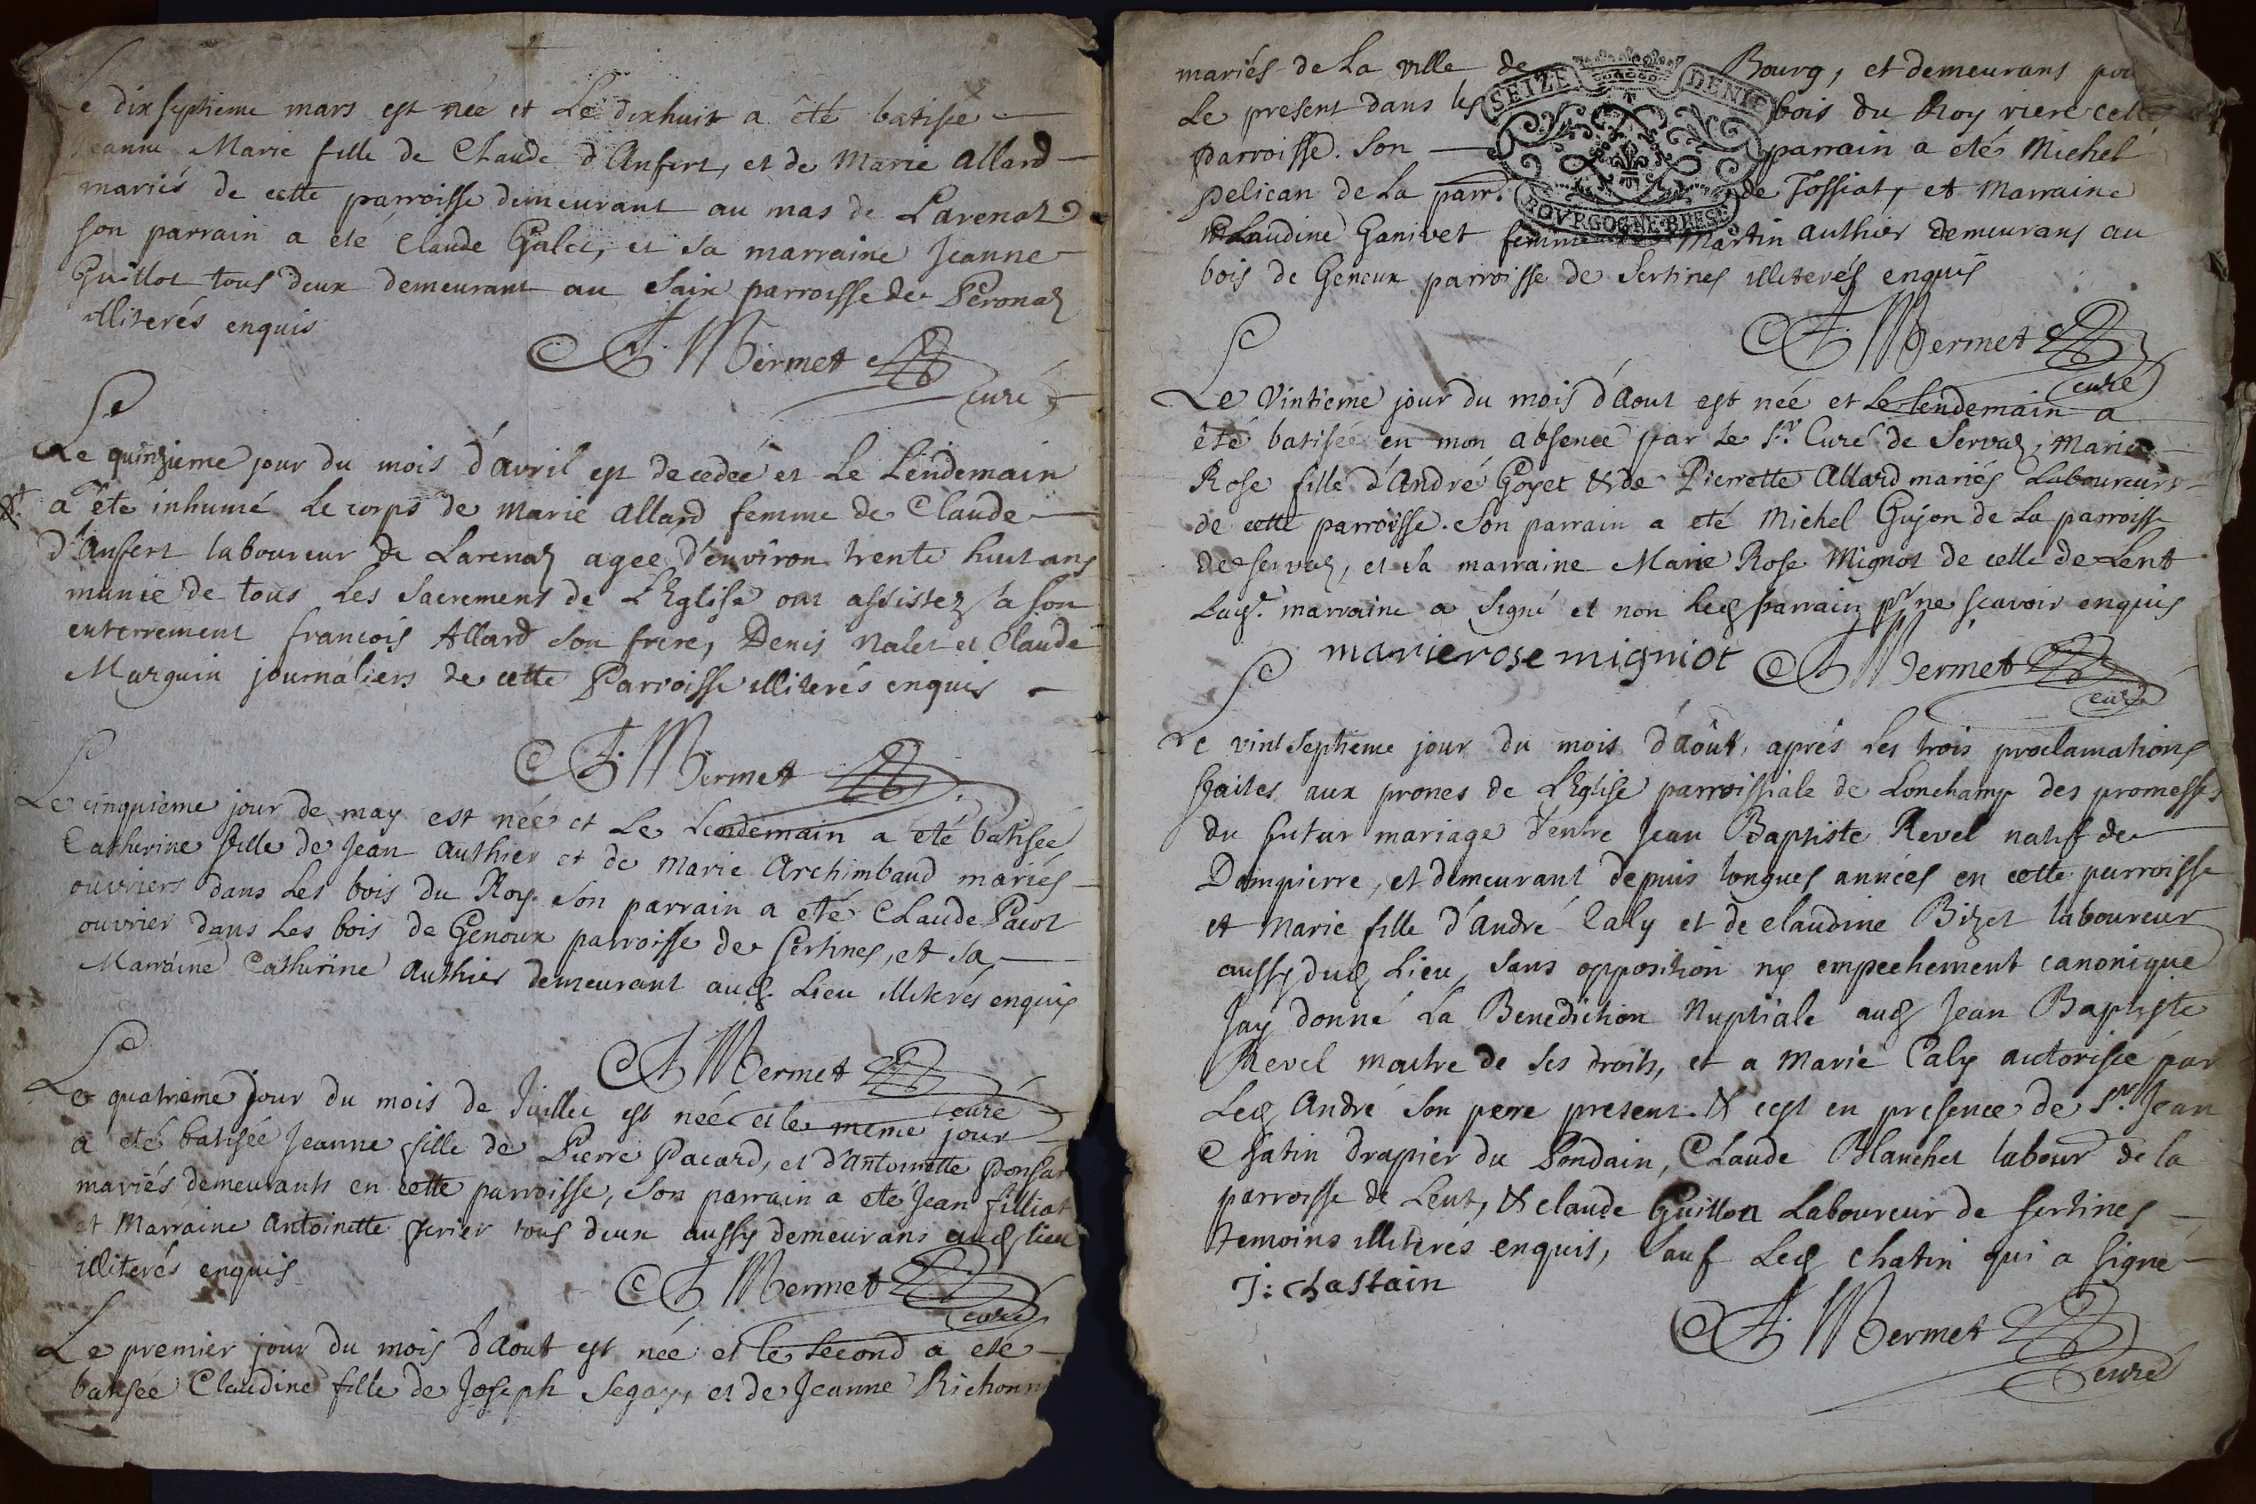 Le dixseptieme mars est née et Le dixhuit a êté batisée
Jeanne Marie fille de Claude d'Anfert, et de Marie Allard
mariés de cette parroisse demeurant au mas de Larenaz
son parrain a eté Claude Galet, et sa marraine Jeanne
Guillot tous deux demeurant au Saix parroisse de Peronaz
illiterés enquis
Mermet
curé
Le quinzieme jour du mois d'avril est decedée et Le Lendemain
a êté inhumé Le corps de Marie Allard femme de Claude
d'Anfert laboureur de Larenaz agée d'environ trente huit ans
munie de tous Les Sacremens de L'Eglise ont assistez a son
enterrement francois Allard son frere, Denis Nalet et Claude
Marguin journaliers de cette Parroisse illiterés enquis
Mermet
Le cinquieme jour de may est née et Le Lendemain a eté batisée
Catherine fille de Jean Authier et de Marie Archimbaud mariés
ouvriers dans Les bois du Roy. Son parrain a eté Claude Pacot
ouvrier dans Les bois de Genoux parroisse de Sertines, et sa
Marraine Catherine Authier demeurant aud. Lieu illiterés enquis
Mermet
curé
Le quatrieme jour du mois de Juillet est née et le meme jour
a eté batisée Jeanne fille de Pierre Pacard, et d'Antoinette Ponsar
mariés demeurants en cette parroisse, son parrain a eté Jean filliat
et Marraine Antoinette ferier tous deux aussy demeurans aud. lieu
illiterés enquis
Mermet
curé
Le premier jour du mois d'Aout est née et le second a eté
batisée Claudine fille de Joseph Segoy, et de Jeanne Richonn
mariés de La ville de Bourg, et demeurans pou
Le present dans les bois du Roy riere cette
parroisse. Son parrain a eté Michel
pelican de La parr. de Tossiat, et Marraine
Claudine Ganivet femme de Martin Authier demeurans au
bois de Genoux parroisse de Sertines illiterés enquis
SEIZE DENIE
BOVRGOGNE BRESS
Mermet
curé
Le Vintieme jour du mois d'Aout est née et Le Lendemain a
êté batisée en mon absence par Le Sr. Curé de Servaz, Marie
Rose fille d'André Goyet & de Pierrette Allard mariés Laboureurs
de cette parroisse. Son parrain a eté Michel Gujon de La parroisse
de Servaz, et sa marraine Marie Rose Mignot de celle de Lent
Lad. marraine a signé et non led. parrain pr. ne sçavoir enquis
marie rose migniot
Mermet
curé
Le vint septieme jour du mois d'Aoùt, aprés Les trois proclamations
faites aux prones de L'Eglise parroissiale de Lonchamp des promesses
du futur mariage d'entre Jean Baptiste Revel natif de
Dampierre, et demeurant depuis longues années en cette parroisse
et Marie fille d'André Caly et de claudine Bizet laboureur
aussy dud. Lieu, sans opposition ny empechement canonique
Jay donné La Benediction Nuptiale aud. Jean Baptiste
Revel maitre de ses droits, et a Marie Caly autorisée par
Led. André son pere present. & cest en presence de Sr. Jean
Chatin drapier du Sondain, Claude Blanchet labour de la
parroisse de Lent, & claude Guillon Laboureur de sertines
temoins illiterés enquis, sauf Led. chatin qui a signé
J: chastain
Mermet
curé